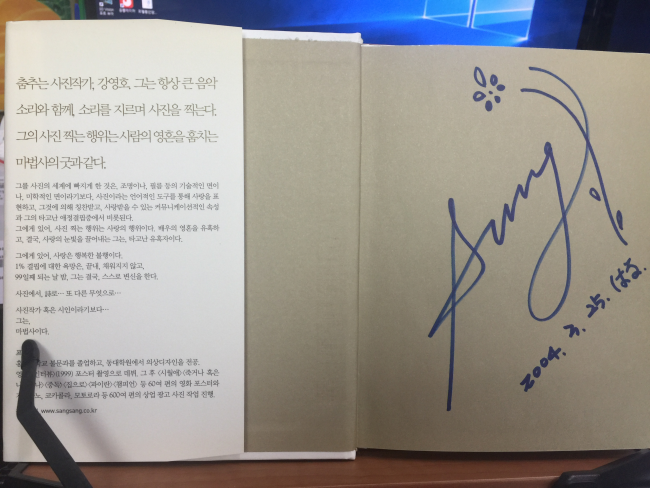 춤추는 사진작가, 강영호, 그는 항상 큰 음악
소리와 함께, 소리를 지르며 사진을 찍는다.
그의 사진 찍는 행위는 사람의 영혼을 훔치는
마법사의 굿과 같다.
그를 사진의 세계에 빠지게 한 것은, 조명이나, 필름 등의 기술적인 면이
나, 미학적인 면이라기보다, 사진이라는 언어적인 도구를 통해 사랑을 표
현하고, 그것에 의해 칭찬받고, 사랑받을 수 있는 커뮤니케이션적인 속성
과 그의 타고난 애정결핍증에서 비롯된다.
그에게 있어, 사진 찍는 행위는 사랑의 행위이다. 배우의 영혼을 유혹하
고, 결국, 사랑의 눈빛을 끌어내는 그는, 타고난 유혹자이다.
그에게 있어, 사랑은 행복한 불행이다.
1% 결핍에 대한 욕망은, 끝내, 채워지지 않고,
99일째 되는 날 밤, 그는 결국, 스스로 변신을 한다.
사진에서, 詩로… 또 다른 무엇으로…
사진작가 혹은 시인이라기보다…
그는,
마법사이다.
불문과를 졸업하고, 동대학원에서 의상디자인을 전공.
(1999) 포스터 촬영으로 데뷔, 그 후 <시월애> <죽거나 혹은
<중독> <집으로> <파이란> <챔피언> 등 60여 편의 영화 포스터와
코카콜라, 모토로라 등 600여 편의 상업 광고 사진 작업 진행.
www.sangsang.co.kr
2004. 3. 25.